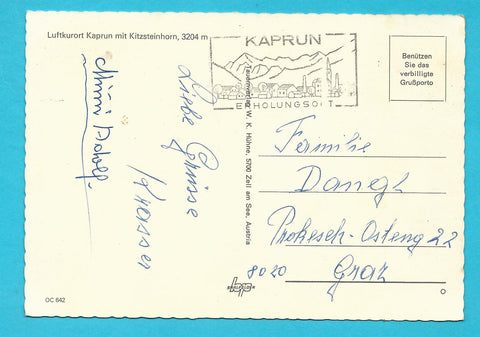 Luftkurort Kaprun mit Kitzsteinhorn, 3204 m
KAPRUN
ERHOLUNGSORT
Benützen
Sie das
verbilligte
Grußporto
Liebe Grüsse
Krasser
W. K. Hühne, 5700 Zell am See, Austria
Familie
Dangl
Prokesch-Osteng 22
8020 Graz
OC 642